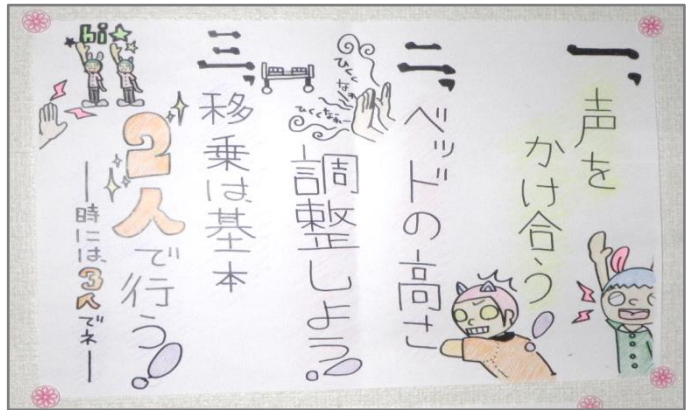 一、
声を
かけ合う!
二、
ベッドの高さ
調整しよう!
ひくくなぁれ
ひくくなぁれ
三、
移乗は基本
2人で行う!
―時には、3人でネ―
hi